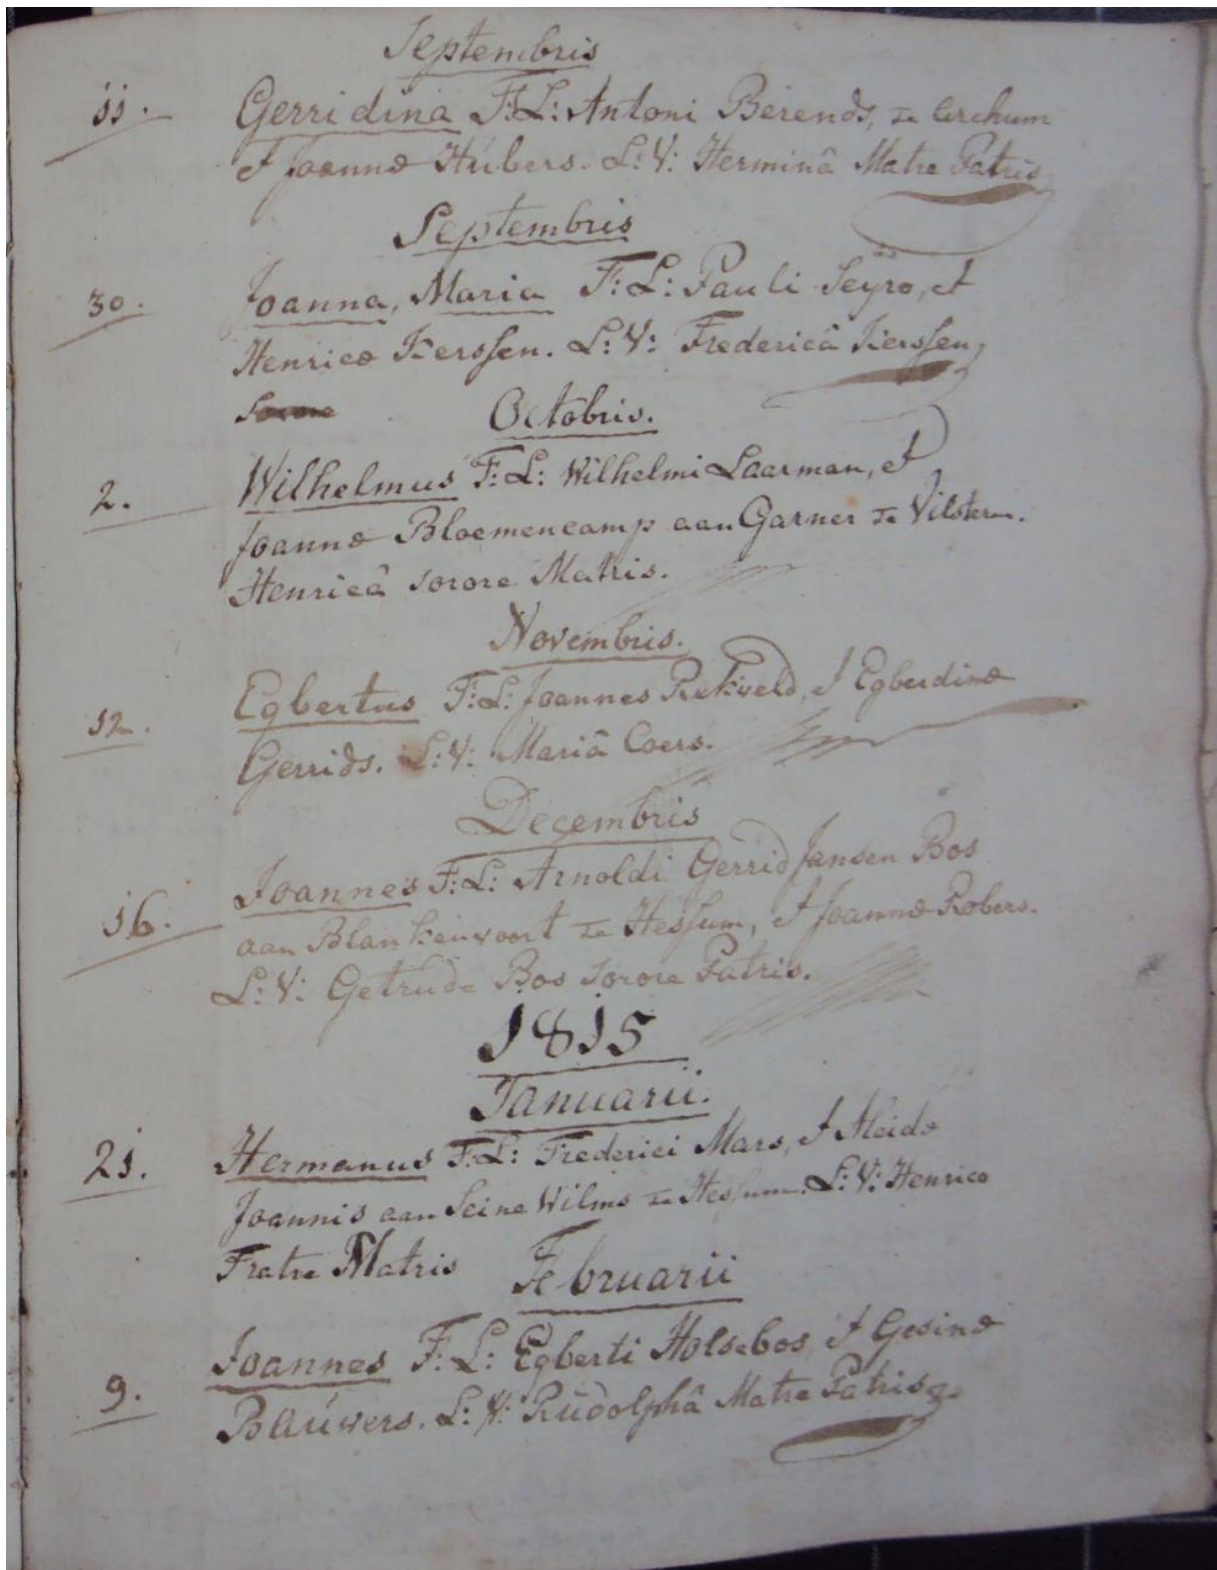 Septembris
11. Gerridina F: L: Antoni Berends, te Archum
et Joannæ Hübers. L: V: Herminâ Matre Patris
Septembris
30. Joanna, Maria F: L: Pauli Seyro, et
Henricæ Kerssen. L: V: Fredericâ Kerssen,
Sorore Octobris.
2. Wilhelmus F: L: Wilhelmi Laarman, et
Joannæ Bloemencamp aan Garner te Vilsteren.
Henricâ sorore Matris.
Novembris.
12. Egbertus F: L: Joannes Rekveld, et Egberdinæ
Gerrids. L: V: Mariâ Coers.
Decembris
16. Joannes F: L: Arnoldi Gerrid Jansen Bos
aan Blankenvoort te Hessum, et Joannæ Robers.
L: V: Getrude Bos sorore Patris.
1815
Januarii.
21. Hermanus F: L: Frederici Mars, et Aleidæ
Joannis aan Seine Wilms te Hessum. L: V: Henrico
Fratre Matris Februarii
9. Joannes F: L: Egberti Holsebos, et Gesinæ
Baúwers. L: V: Rudolphâ Matre Patris